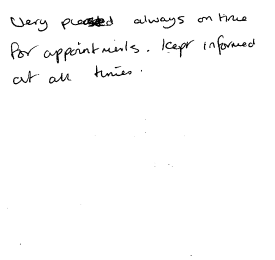 Very pleased always on time
for appointments. Kept informed
at all times.